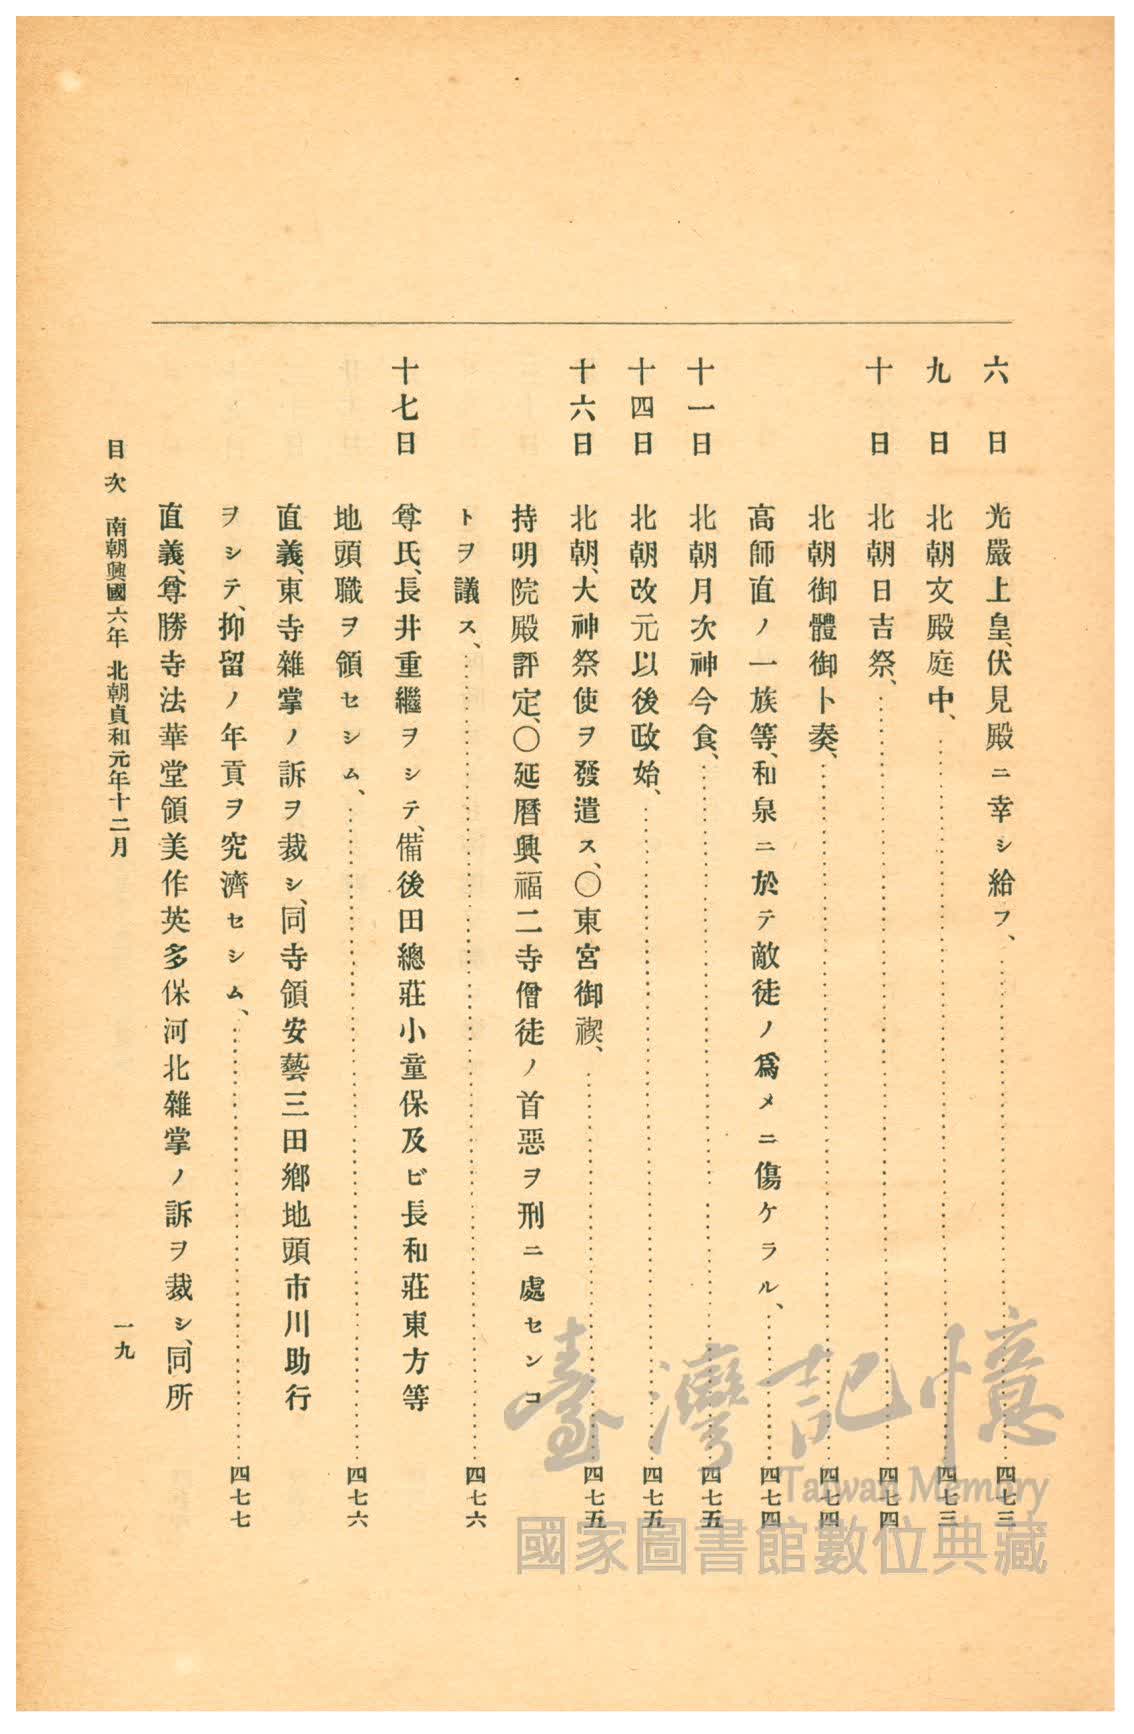 六日　光嚴上皇、伏見殿ニ幸シ給フ、………四七三
九日　北朝文殿庭中、………四七三
十日　北朝日吉祭、………四七四
北朝御體御卜奏、………四七四
高師直ノ一族等、和泉ニ於テ敵徒ノ爲メニ傷ケラル、………四七四
十一日　北朝月次神今食、………四七五
十四日　北朝改元以後政始、………四七五
十六日　北朝、大神祭使ヲ發遣ス、〇東宮御禊、………四七五
持明院殿評定、〇延曆興福二寺僧徒ノ首惡ヲ刑ニ處センコ
トヲ議ス、………四七六
十七日　尊氏、長井重繼ヲシテ、備後田總莊小童保及ビ長和莊東方等
地頭職ヲ領セシム、………四七六
直義、東寺雜掌ノ訴ヲ裁シ、同寺領安藝三田鄕地頭市川助行
ヲシテ、抑留ノ年貢ヲ究濟セシム、………四七七
直義、尊勝寺法華堂領美作英多保河北雜掌ノ訴ヲ裁シ、同所
目次　南朝興國六年　北朝貞和元年十二月　一九
臺灣記憶
Taiwan Memory
國家圖書館數位典藏